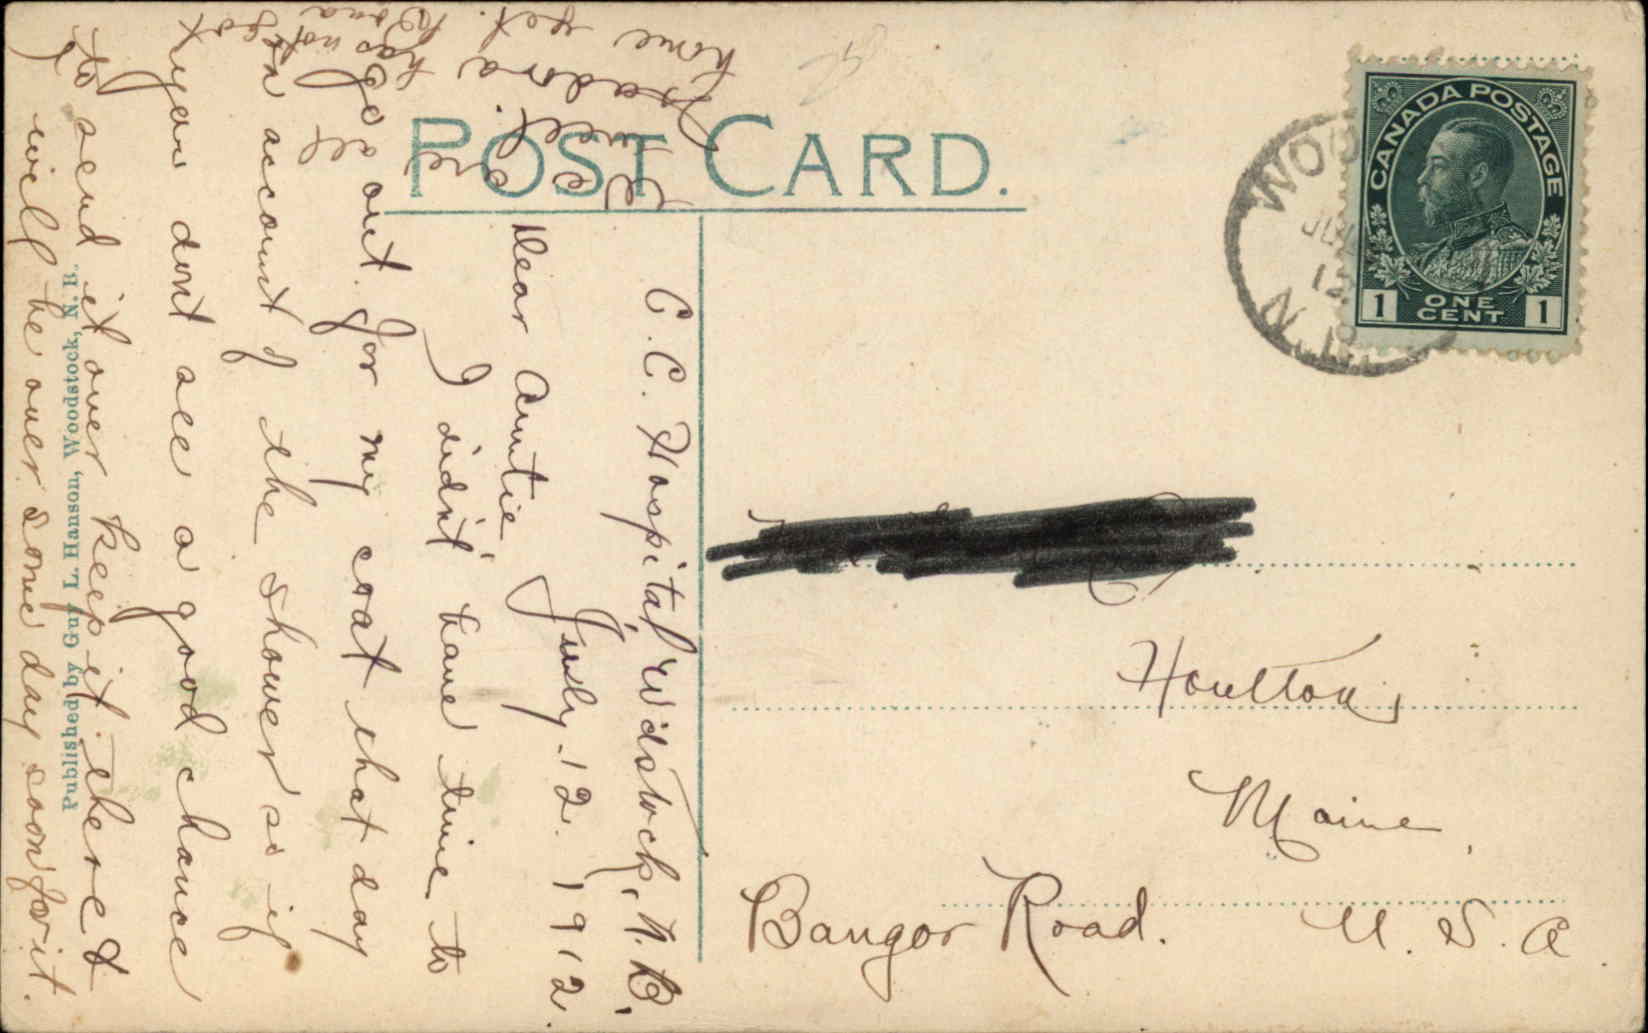 POST CARD.
CANADA POSTAGE
1 ONE CENT 1
WOO
JUL
12
N.
C. C. Hospital, W'dstock, N. B.,
July 12. 1912.
Dear Auntie
I didn't have time to
go out for my coat that day
on account of the shower so if
you don't see a good chance
to send it over keep it there &
I will be over some day soon for it.
We
are all well.
Isadora has not got
home yet.
Houlton,
Maine,
Bangor Road. U. S. A.
Published by Guy L. Hanson, Woodstock, N. B.